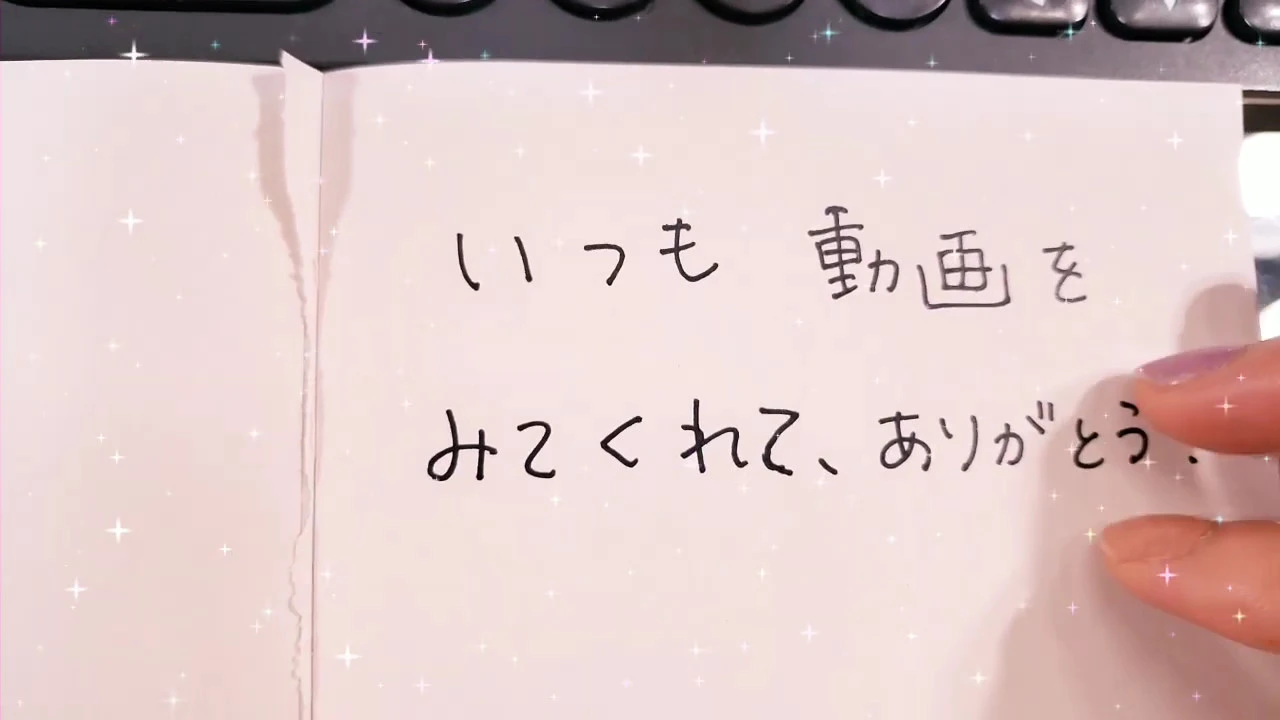 いつも 動画を
みてくれて、ありがとう.